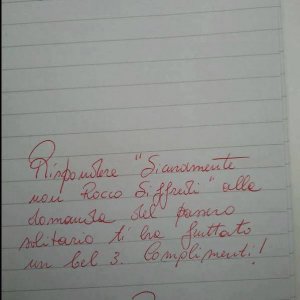 Rispondere "Sicuramente
non Rocco Siffredi" alla
domanda del passero
solitario ti ha fruttato
un bel 3. Complimenti!